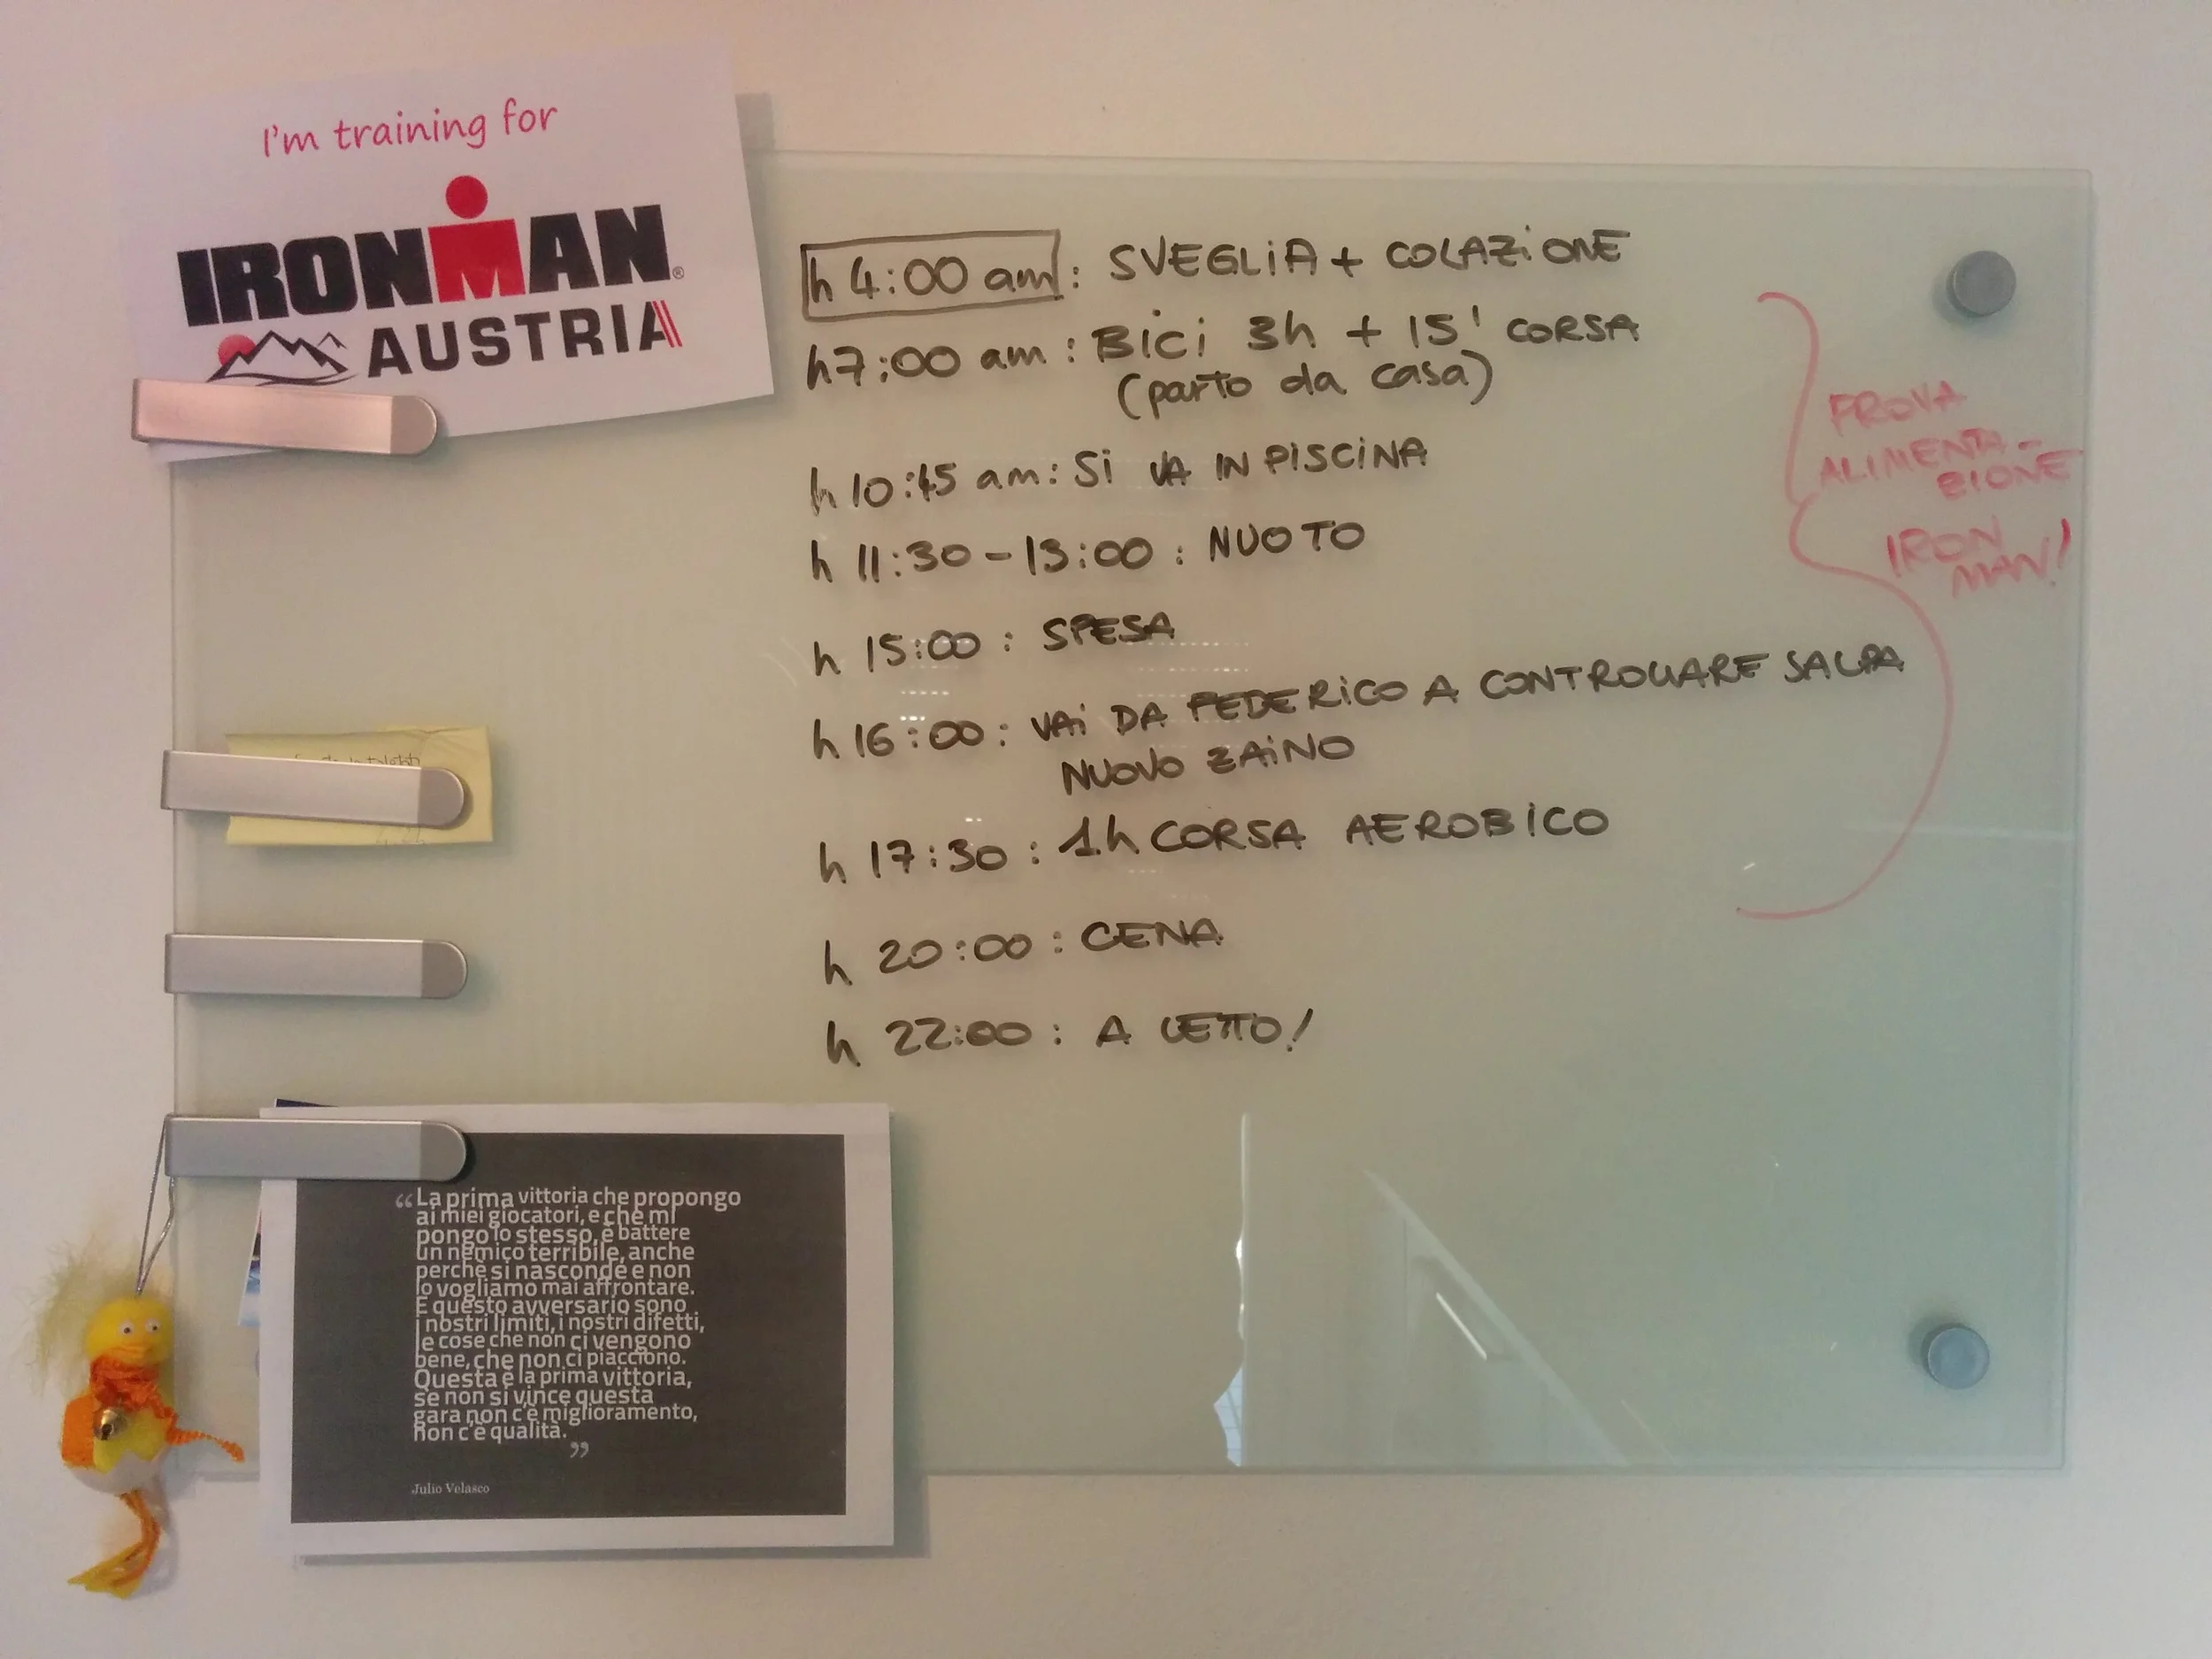 I'm training for
IRONMAN®
AUSTRIA
h 4:00 am: SVEGLIA + COLAZIONE
h7:00 am: BICI 3h + 15' CORSA
(parto da casa)
h 10:45 am: SI VA IN PISCINA
h 11:30-13:00: NUOTO
h 15:00: SPESA
h 16:00: VAI DA FEDERICO A CONTROLLARE SALPA
NUOVO ZAINO
h 17:30: 1h CORSA AEROBICO
h 20:00: CENA
h 22:00: A LETTO!
PROVA
ALIMENTA-
ZIONE
IRON
MAN!
“La prima vittoria che propongo
ai miei giocatori, e che mi
pongo io stesso, è battere
un nemico terribile, anche
perchè si nasconde e non
lo vogliamo mai affrontare.
E questo avversario sono
i nostri limiti, i nostri difetti,
le cose che non ci vengono
bene, che non ci piacciono.
Questa è la prima vittoria,
se non si vince questa
gara non c'è miglioramento,
non c'è qualità.
”
Julio Velasco